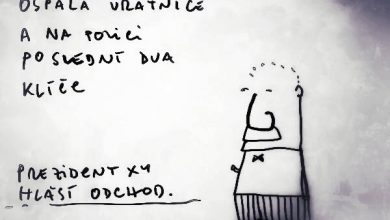 OSPALÁ VRÁTNICE
A NA POLICI
POSLEDNÍ DVA
KLÍČE
PREZIDENT XY
HLÁSÍ ODCHOD.